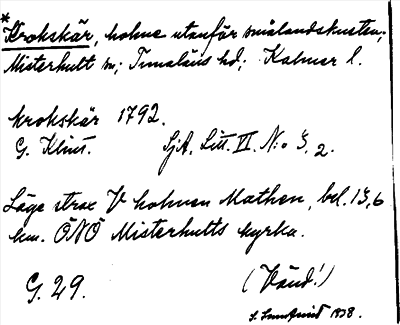 *Krokskär, holme utanför smålandskusten;
Misterhult sn; Tunaläns hd; Kalmar l.
krokskär 1792.
G. Klint. SjA, Litt. VI. N:o 3, 2.
Läge strax V holmen Mathen, bel. 13,6
km. ÖNÖ Misterhults kyrka.
G. 29. (Vänd!)
1938.